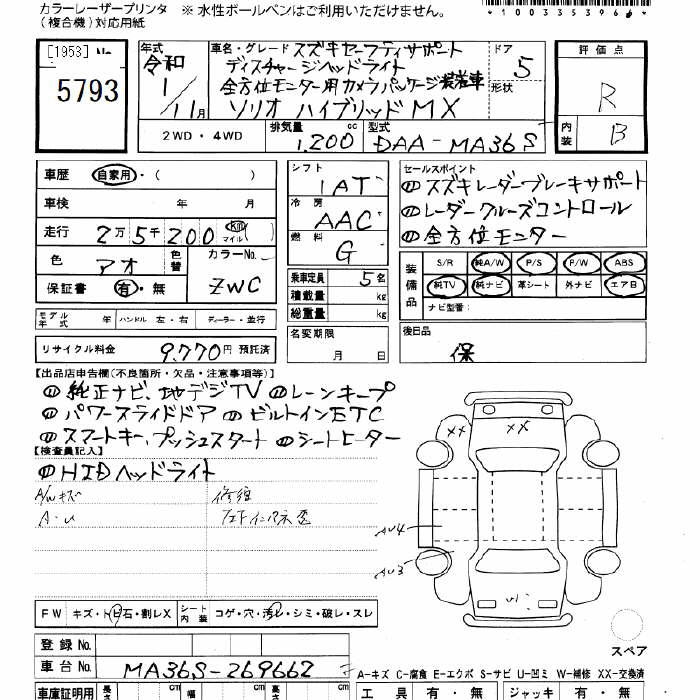 カラーレーザープリンタ
(複合機)対応用紙
※ 水性ボールペンはご利用いただけません。
[1953] No.
5793
年式 令和 1/11月
車名・グレード スズキセーフティサポート
ディスチャージヘッドライト
全方位モニター用カメラパッケージ装着車
ソリオ ハイブリッドMX
ドア 5
形状
2WD・4WD
排気量 1,200 cc
型式 DAA-MA36S
評価点
R
内装 B
車歴 自家用・( )
車検 年 月
走行 2万5千200 km マイル
色 アオ 色替 カラーNo. ZWC
保証書 有・無
モデル年式 年 ハンドル 左・右 ディーラー・並行
リサイクル料金 9,770円 預託済
シフト
IAT
冷房
AAC
燃料
G
乗車定員 5名
積載量 kg
総重量 kg
名変期限
月 日
セールスポイント
①スズキレーダーブレーキサポート
①レーダークルーズコントロール
①全方位モニター
装備品 S/R 純A/W P/S P/W ABS
純TV 純ナビ 革シート 外ナビ エアB
ナビ型番:
後日品
保
【出品店申告欄(不良箇所・欠品・注意事項等)】
①純正ナビ、地デジTV ①レーンキープ
①パワースライドドア ①ビルトインETC
①スマートキー、プッシュスタート ①シートヒーター
【検査員記入】
①HIDヘッドライト
A/Wキズ
A・U
修復
XX
XX
AU4
AU3
スペア
FW キズ・トビ石・割レX シート内装 コゲ・穴・汚レ・シミ・破レ・スレ
登録 No.
車台 No. MA36S-269662
A-キズ C-腐食 E-エクボ S-サビ U-凹ミ W-補修 XX-交換済
車庫証明用 長さ cm 幅 cm 高さ cm
工具 有・無 ジャッキ 有・無